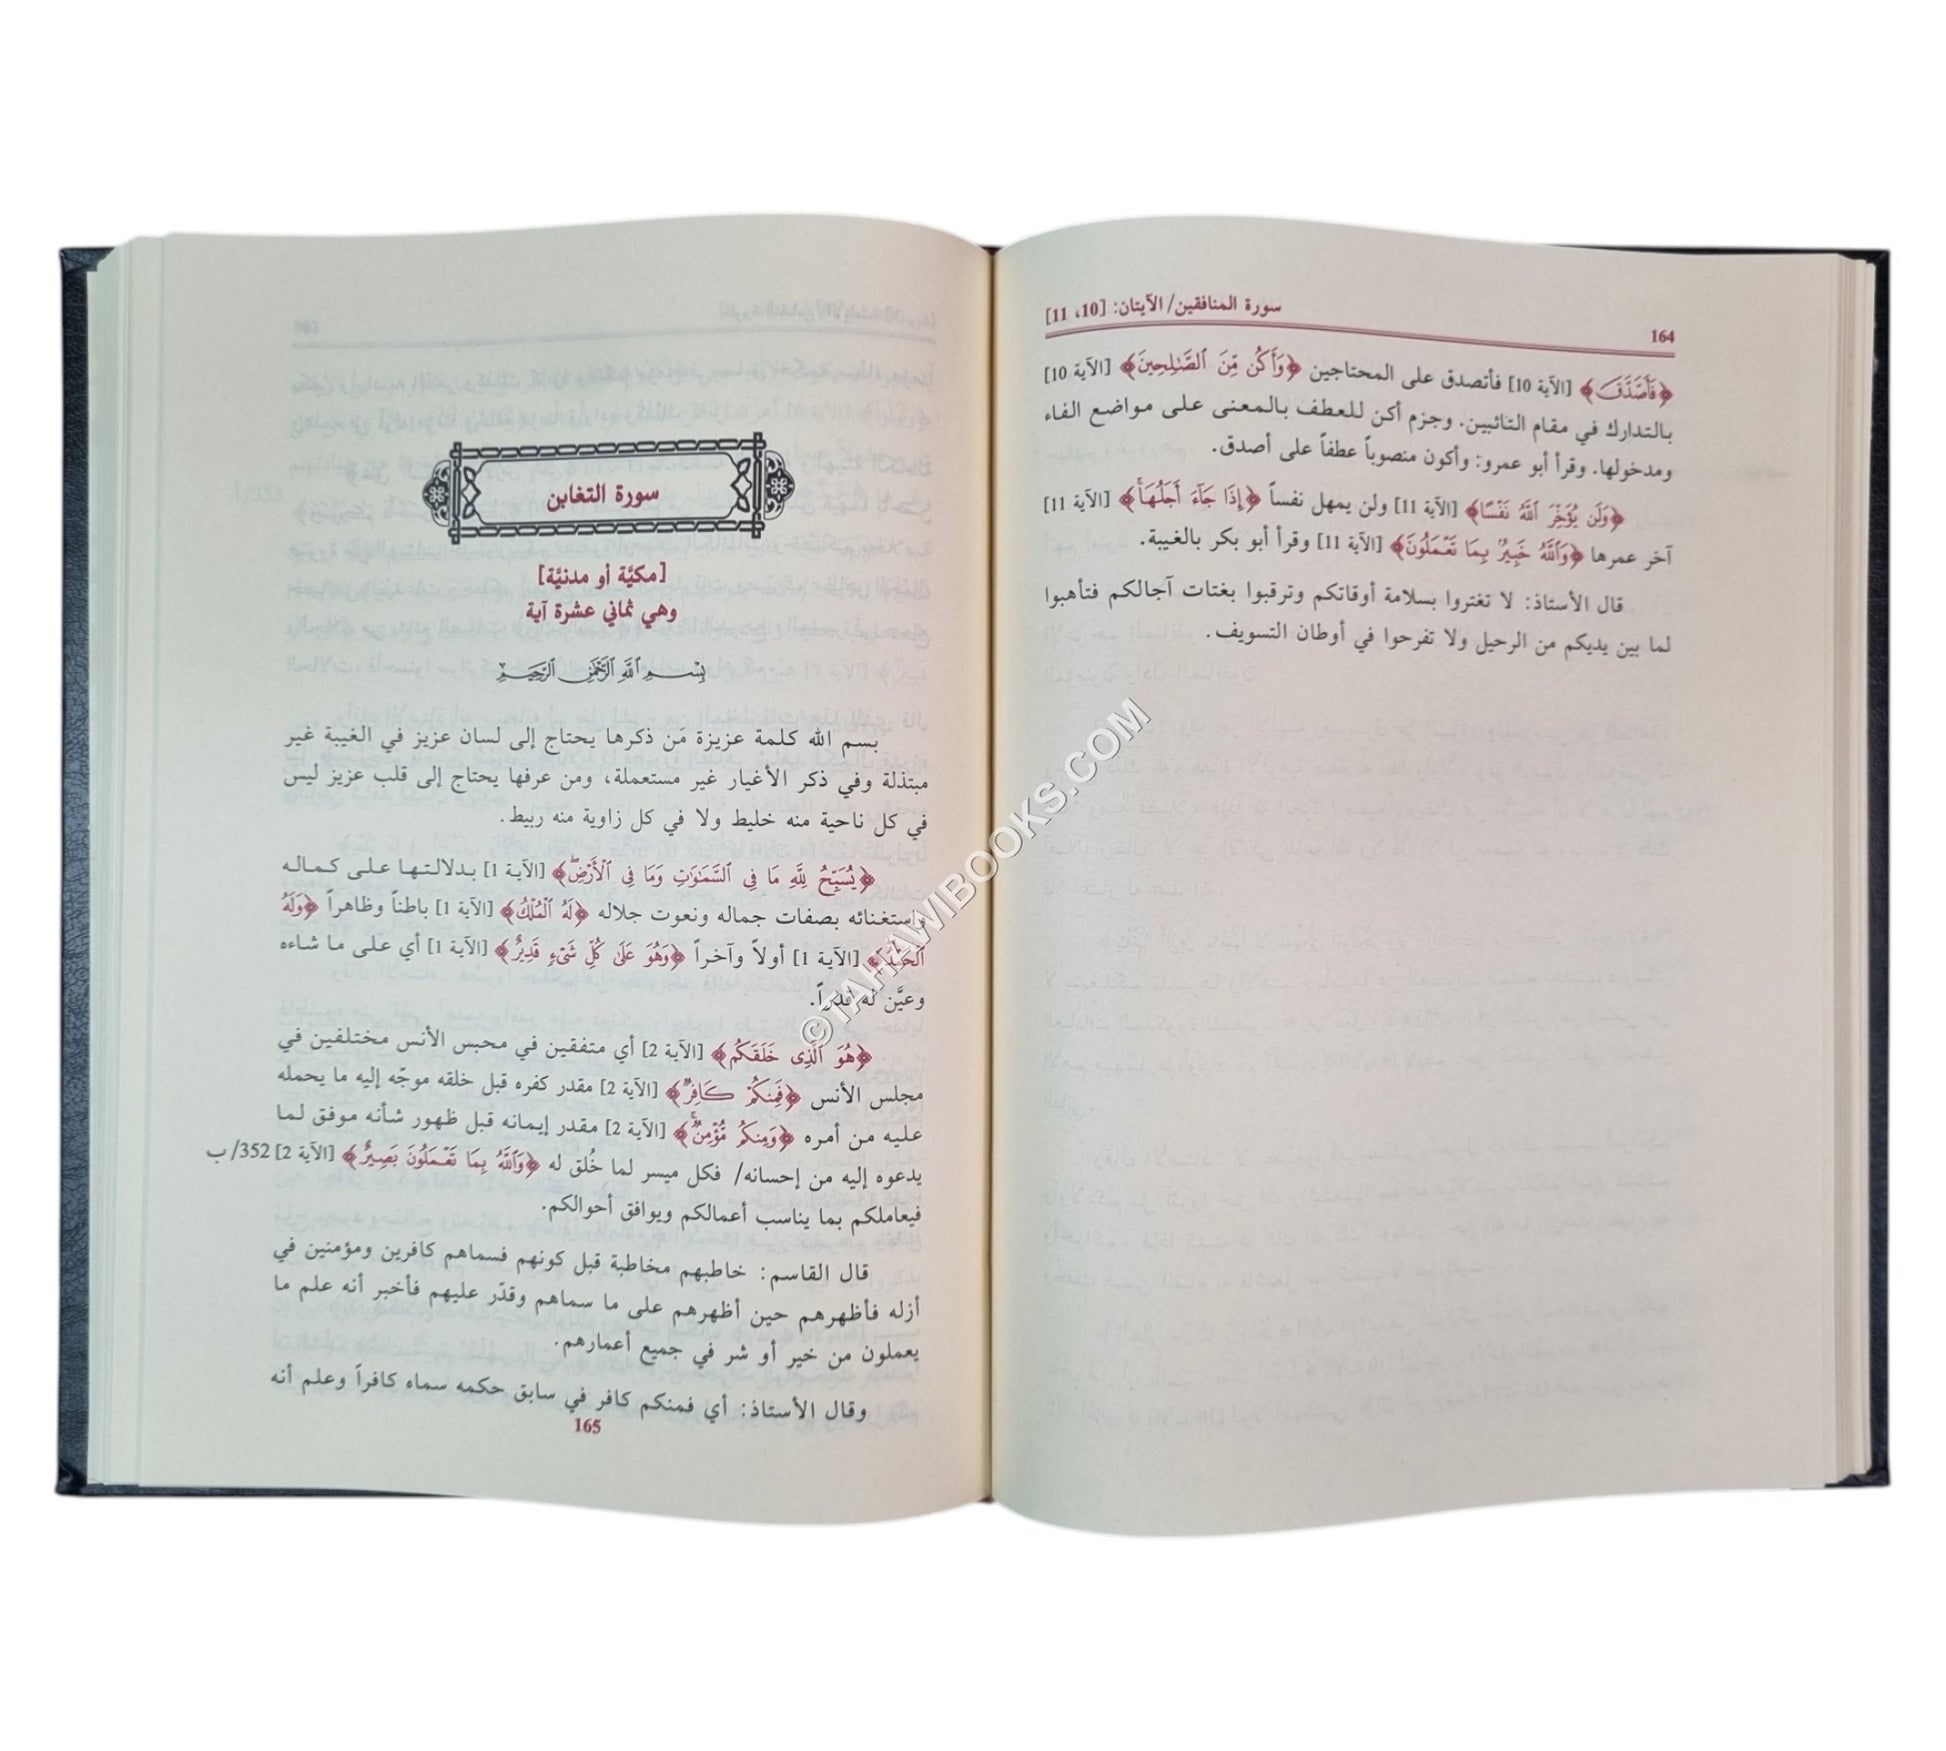 سورة المنافقين/ الآيتان: [10، 11]
164
﴿فَأَصَّدَّقَ﴾ [الآية 10] فأتصدق على المحتاجين ﴿وَأَكُن مِّنَ ٱلصَّٰلِحِينَ﴾ [الآية 10]
بالتدارك في مقام التائبين. وجزم أكن للعطف بالمعنى على مواضع الفاء
ومدخولها. وقرأ أبو عمرو: وأكون منصوباً عطفاً على أصدق.
﴿وَلَن يُؤَخِّرَ ٱللَّهُ نَفْسًا﴾ [الآية 11] ولن يمهل نفساً ﴿إِذَا جَآءَ أَجَلُهَا﴾ [الآية 11]
آخر عمرها ﴿وَٱللَّهُ خَبِيرٌۢ بِمَا تَعْمَلُونَ﴾ [الآية 11] وقرأ أبو بكر بالغيبة.
قال الأستاذ: لا تغتروا بسلامة أوقاتكم وترقبوا بغتات آجالكم فتأهبوا
لما بين يديكم من الرحيل ولا تفرحوا في أوطان التسويف.
سورة التغابن
[مكيَّة أو مدنيَّة]
وهي ثماني عشرة آية
بِسْمِ ٱللَّهِ ٱلرَّحْمَٰنِ ٱلرَّحِيمِ
بسم الله كلمة عزيزة مَن ذكرها يحتاج إلى لسان عزيز في الغيبة غير
مبتذلة وفي ذكر الأغيار غير مستعملة، ومن عرفها يحتاج إلى قلب عزيز ليس
في كل ناحية منه خليط ولا في كل زاوية منه ربيط.
﴿يُسَبِّحُ لِلَّهِ مَا فِى ٱلسَّمَٰوَٰتِ وَمَا فِى ٱلْأَرْضِ﴾ [الآية 1] بدلالتها على كماله
واستغنائه بصفات جماله ونعوت جلاله ﴿لَهُ ٱلْمُلْكُ﴾ [الآية 1] باطناً وظاهراً ﴿وَلَهُ
ٱلْحَمْدُ﴾ [الآية 1] أولاً وآخراً ﴿وَهُوَ عَلَىٰ كُلِّ شَىْءٍ قَدِيرٌ﴾ [الآية 1] أي على ما شاءه
وعيَّن له قدراً.
﴿هُوَ ٱلَّذِى خَلَقَكُمْ﴾ [الآية 2] أي متفقين في محبس الأنس مختلفين في
مجلس الأنس ﴿فَمِنكُمْ كَافِرٌ﴾ [الآية 2] مقدر كفره قبل خلقه موجّه إليه ما يحمله
عليه من أمره ﴿وَمِنكُم مُّؤْمِنٌ﴾ [الآية 2] مقدر إيمانه قبل ظهور شأنه موفق لما
يدعوه إليه من إحسانه/ فكل ميسر لما خُلق له ﴿وَٱللَّهُ بِمَا تَعْمَلُونَ بَصِيرٌ﴾ [الآية 2] 352/ ب
فيعاملكم بما يناسب أعمالكم ويوافق أحوالكم.
قال القاسم: خاطبهم مخاطبة قبل كونهم فسماهم كافرين ومؤمنين في
أزله فأظهرهم حين أظهرهم على ما سماهم وقدّر عليهم فأخبر أنه علم ما
يعملون من خير أو شر في جميع أعمارهم.
وقال الأستاذ: أي فمنكم كافر في سابق حكمه سماه كافراً وعلم أنه
165
© TAHAWIBOOKS.COM